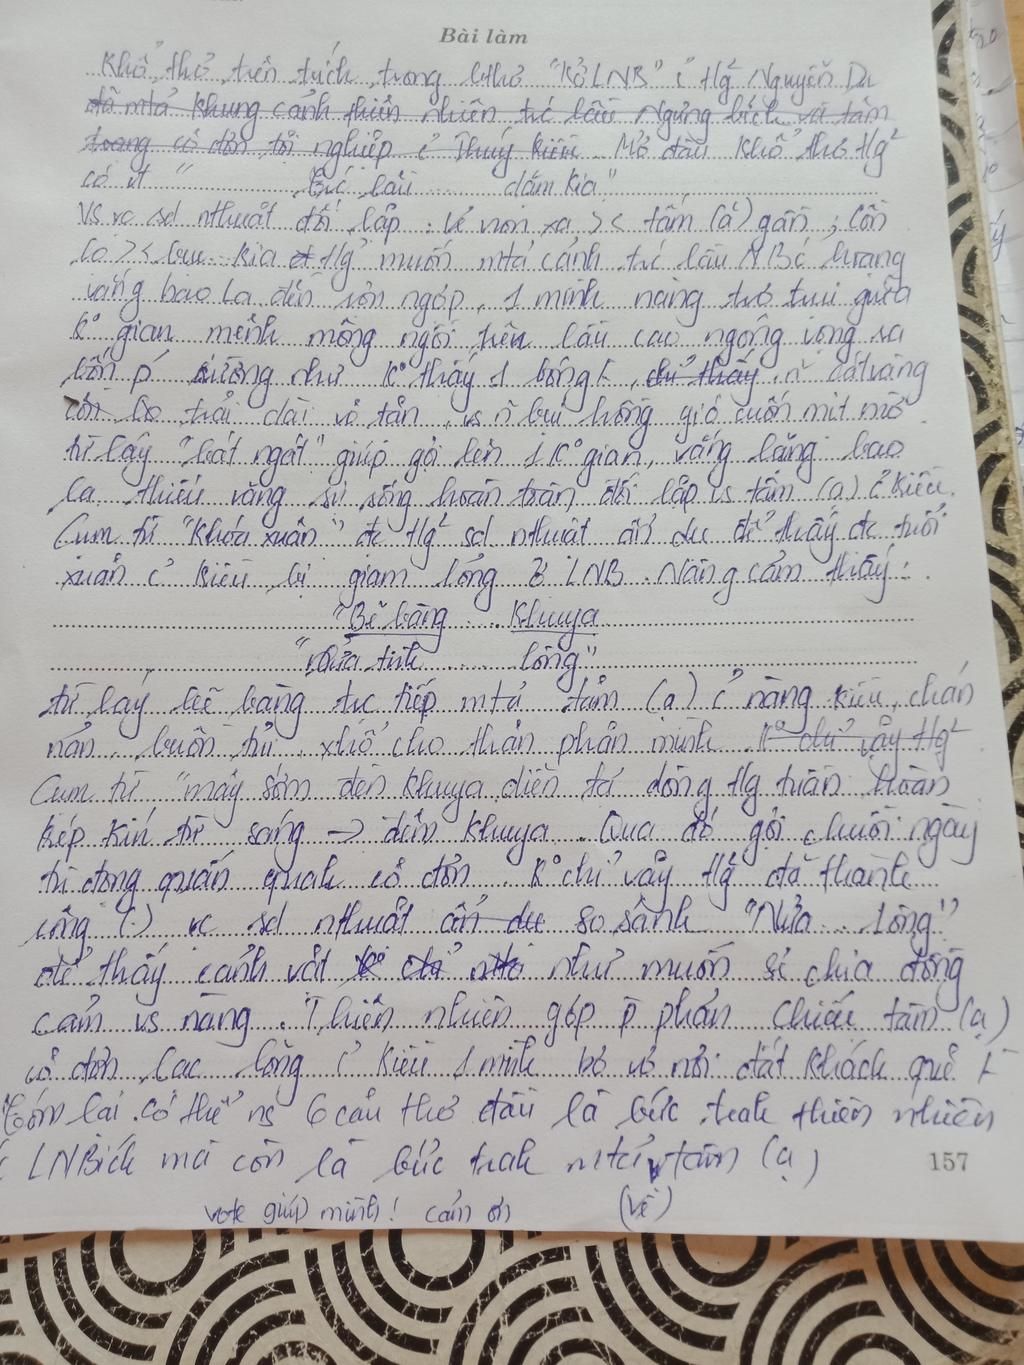 Bài làm
Khổ thơ trên trích trong bthơ "KởLNB" củ Hg² Nguyễn Du
đã mtả khung cảnh thiên nhiên trc lầu Ngưng bích và tâm
trạng cô đơn tội nghiệp củ Thuý Kiều. Mở đầu khổ thơ Tg²
có vt "                Trc lầu ..... dặm kia"
Vs vc sd nthuật đối lập : vẻ non xa >< tấm (ă) gần ; cồn
kia muốn mtả cảnh trc lầu NBíc hoang
vắng bao la đến rợn ngợp. 1 mình nàng trơ trụi giữa
k° gian mênh mông ngồi trên lầu cao ngóng vọng xa
bốn p' dường như k° thấy 1 bóng chỉ thấy n~ cát vàng
cồn trải dài vô tận, vs n~ bụi hồng gió cuốn mịt mờ
từ láy "bát ngát" giúp gợi lên 1 k° gian, vắng lặng bao
la thiếu vắng sự sống hoàn toàn đối lập vs tâm (ạ) củ Kiều.
Cụm từ "Khoá xuân" đc tg² sd nthuật ẩn dụ để thấy đc tuổi
xuân củ Kiều bị giam lỏng ở LNB. Nàng cảm thấy:
"Bẽ bàng .... khuya
"nửa tình ..... lòng"
từ láy bẽ bàng trc tiếp mtả tâm (ạ) củ nàng Kiều, chán
nản, buồn tủi, xhổ cho thân phận mình. k° chỉ vậy tg²
Cụm từ "mây sớm đèn khuya diễn tả dòng tg tuần hoàn
kép kín từ sáng -> đến khuya. Qua đó gợi chuỗi ngày
tù đọng quẩn quah cô đơn. k° chỉ vậy tg² đã thành
công (.) vc sd nthuật ẩn dụ so sánh "Nửa ... lòng"
để thấy cảnh vật như muốn sẻ chia đồng
cảm vs nàng. Thiên nhiên góp p phản chiếu tâm (ạ)
cô đơn lạc lõng củ Kiều 1 mình bơ vơ nơi đất khách quê
Tóm lại có thể ns 6 câu thơ đầu là bức trah thiên nhiên
LNBích mà còn là bức trah mtả tâm (ạ)
(về)
157
vote giúp mình! cảm ơn